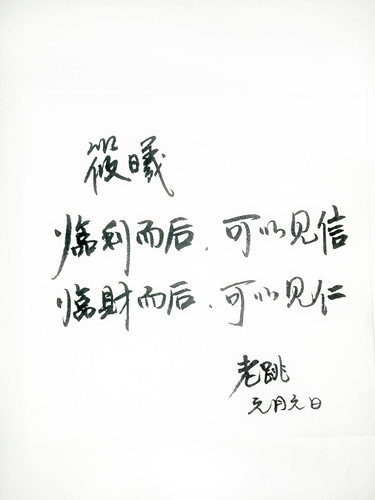 筱曦
临利而后,可以见信
临財而后,可以见仁
老跳
元月元日